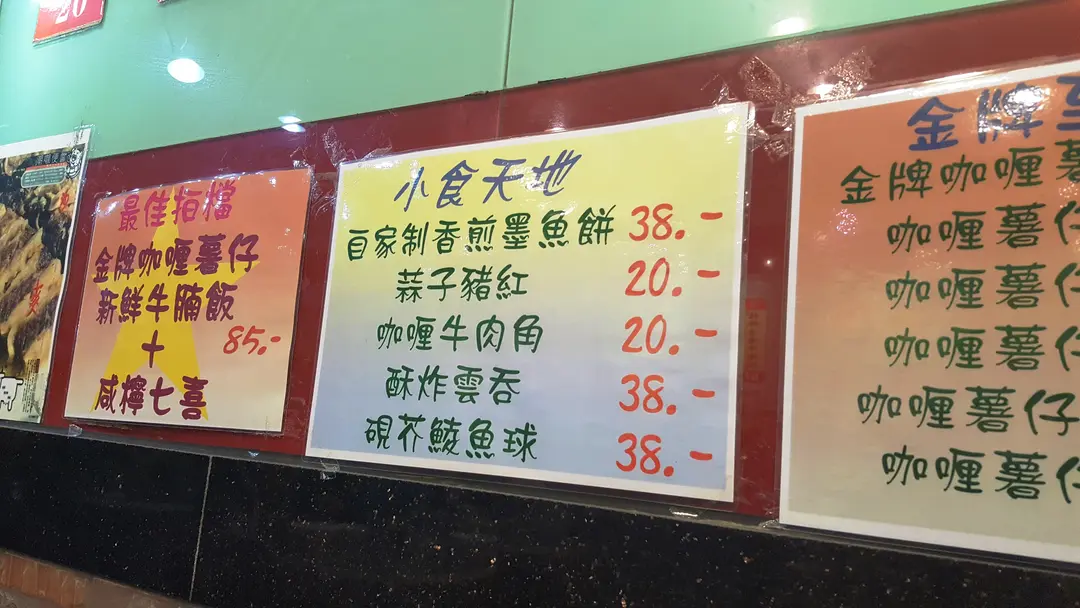 20
最佳拍檔
金牌咖喱薯仔
新鮮牛腩飯
+
85.-
咸檸七喜
小食天地
自家制香煎墨魚餅 38.-
蒜子豬紅 20.-
咖喱牛肉角 20.-
酥炸雲吞 38.-
硯芥鯪魚球 38.-
金牌
金牌咖喱薯
咖喱薯仔
咖喱薯仔
咖喱薯仔
咖喱薯仔
咖喱薯仔